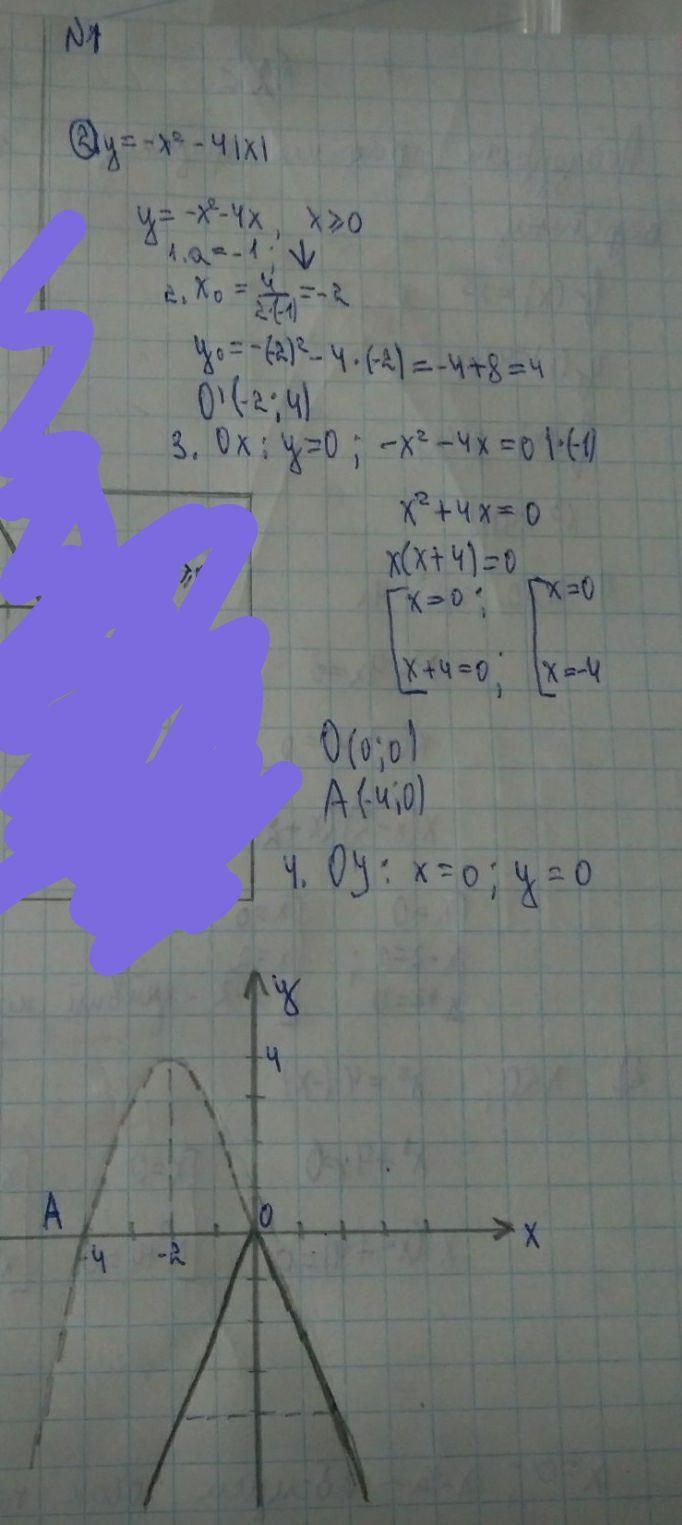 N1
② y = -x² - 4|x|
y = -x² - 4x, x ≥ 0
1. a = -1; ↓
2. x₀ = 4/(2·(-1)) = -2
y₀ = -(-2)² - 4·(-2) = -4+8 = 4
O'(-2; 4)
3. Ox: y=0; -x² - 4x = 0 |·(-1)
x² + 4x = 0
x(x+4) = 0
[x=0; [x=0
[x+4=0; [x=-4
O(0;0)
A(-4;0)
4. Oy: x=0; y=0
y
4
A 0
-4 -2 x